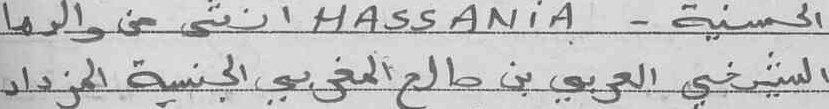 الحسنية - HASSANIA انثى من والدها
الشرفي العربي بن صالح المغربي الجنسية المزداد